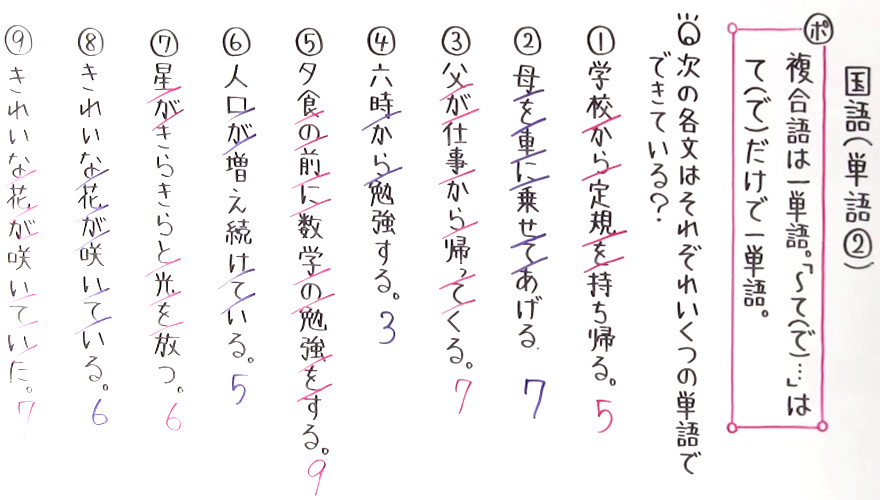 国語(単語②)
ポ
複合語は一単語。「〜て(で)…」は
て(で)だけで一単語。
Q 次の各文はそれぞれいくつの単語で
できている？
① 学校から定規を持ち帰る。 5
② 母を車に乗せてあげる. 7
③ 父が仕事から帰ってくる。 7
④ 六時から勉強する。 3
⑤ 夕食の前に数学の勉強をする。 9
⑥ 人口が増え続けている。 5
⑦ 星がきらきらと光を放つ。 6
⑧ きれいな花が咲いている。 6
⑨ きれいな花が咲いていた。 7